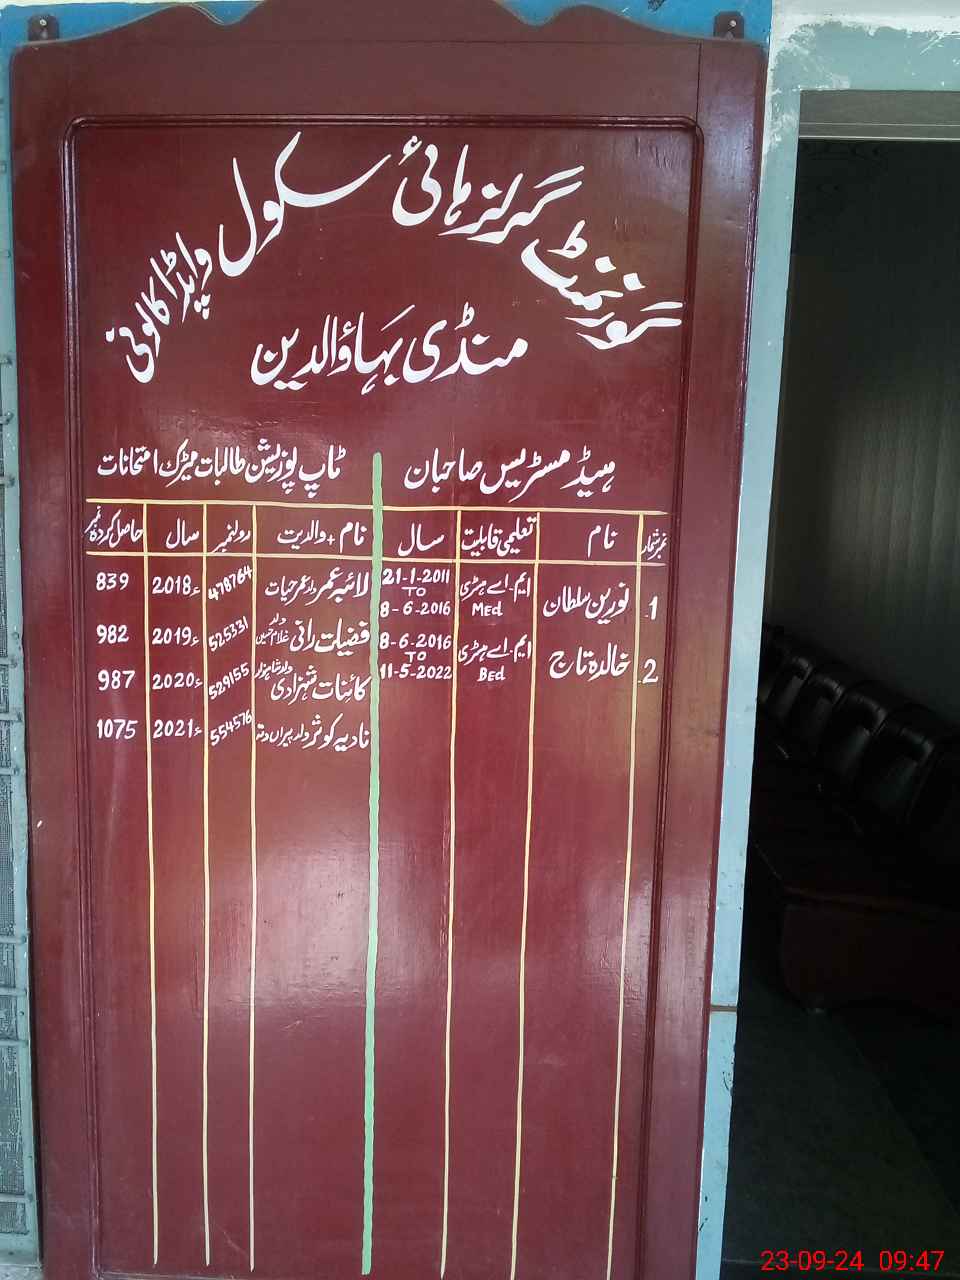 گورنمنٹ گرلز ہائی سکول واپڈا کالونی
منڈی بہاؤالدین
ہیڈ مسٹریس صاحبان
نمبرشمار نام تعلیمی قابلیت سال
1. نورین سلطان ایم۔اے ہسٹری MEd 21-1-2011 TO 8-6-2016
2. خالدہ تاج ایم۔اے ہسٹری BEd 8-6-2016 TO 11-5-2022
ٹاپ پوزیشن طالبات میٹرک امتحانات
نام + والدیت رولنمبر سال حاصل کردہ نمبر
لائبہ عمر ولد عمر حیات 478764 2018ء 839
فضیلت رانی ولد غلام حسین 525331 2019ء 982
کائنات شہزادی ولد شاہنواز 529155 2020ء 987
نادیہ کوثر ولد پیراں دتہ 554576 2021ء 1075
23-09-24 09:47